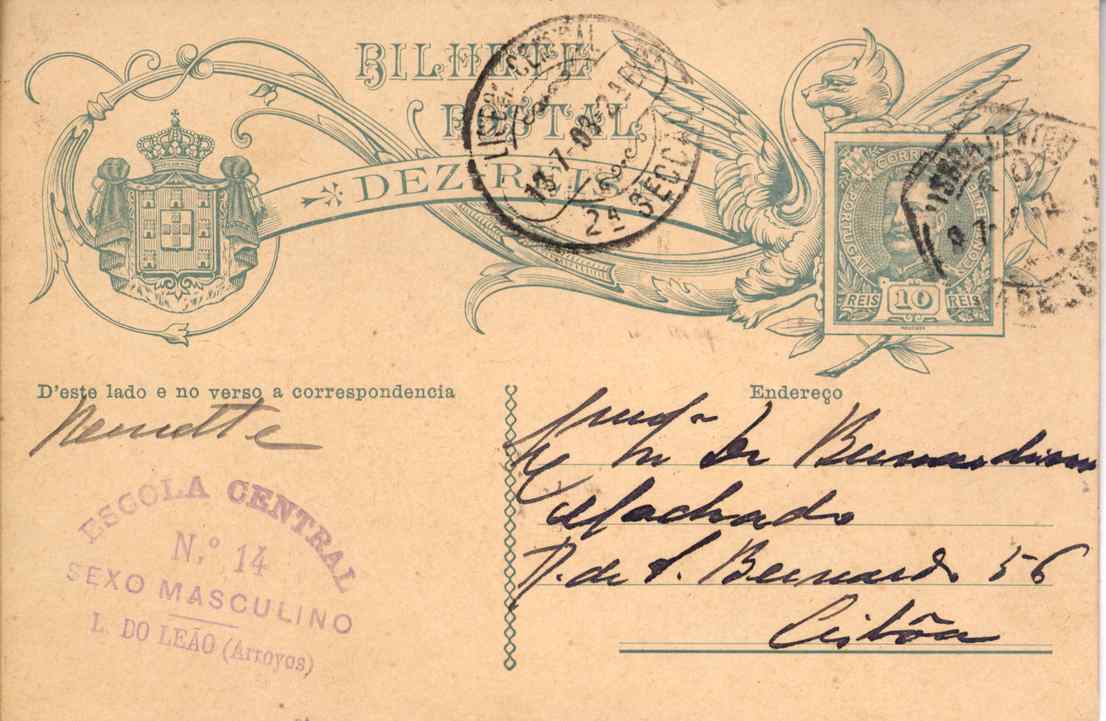 BILHETE
POSTAL
DEZ REIS
LISBOA CENTRAL
13-7-09
2ª SECÇÃO
CORREIOS
PORTUGAL
REIS 10 REIS
D'este lado e no verso a correspondencia
Endereço
Remette
ESCOLA CENTRAL
N.º 14
SEXO MASCULINO
L. DO LEÃO (Arroyos)
Dr Bernardino
Machado
R. de S. Bernardo 56
Lisbôa